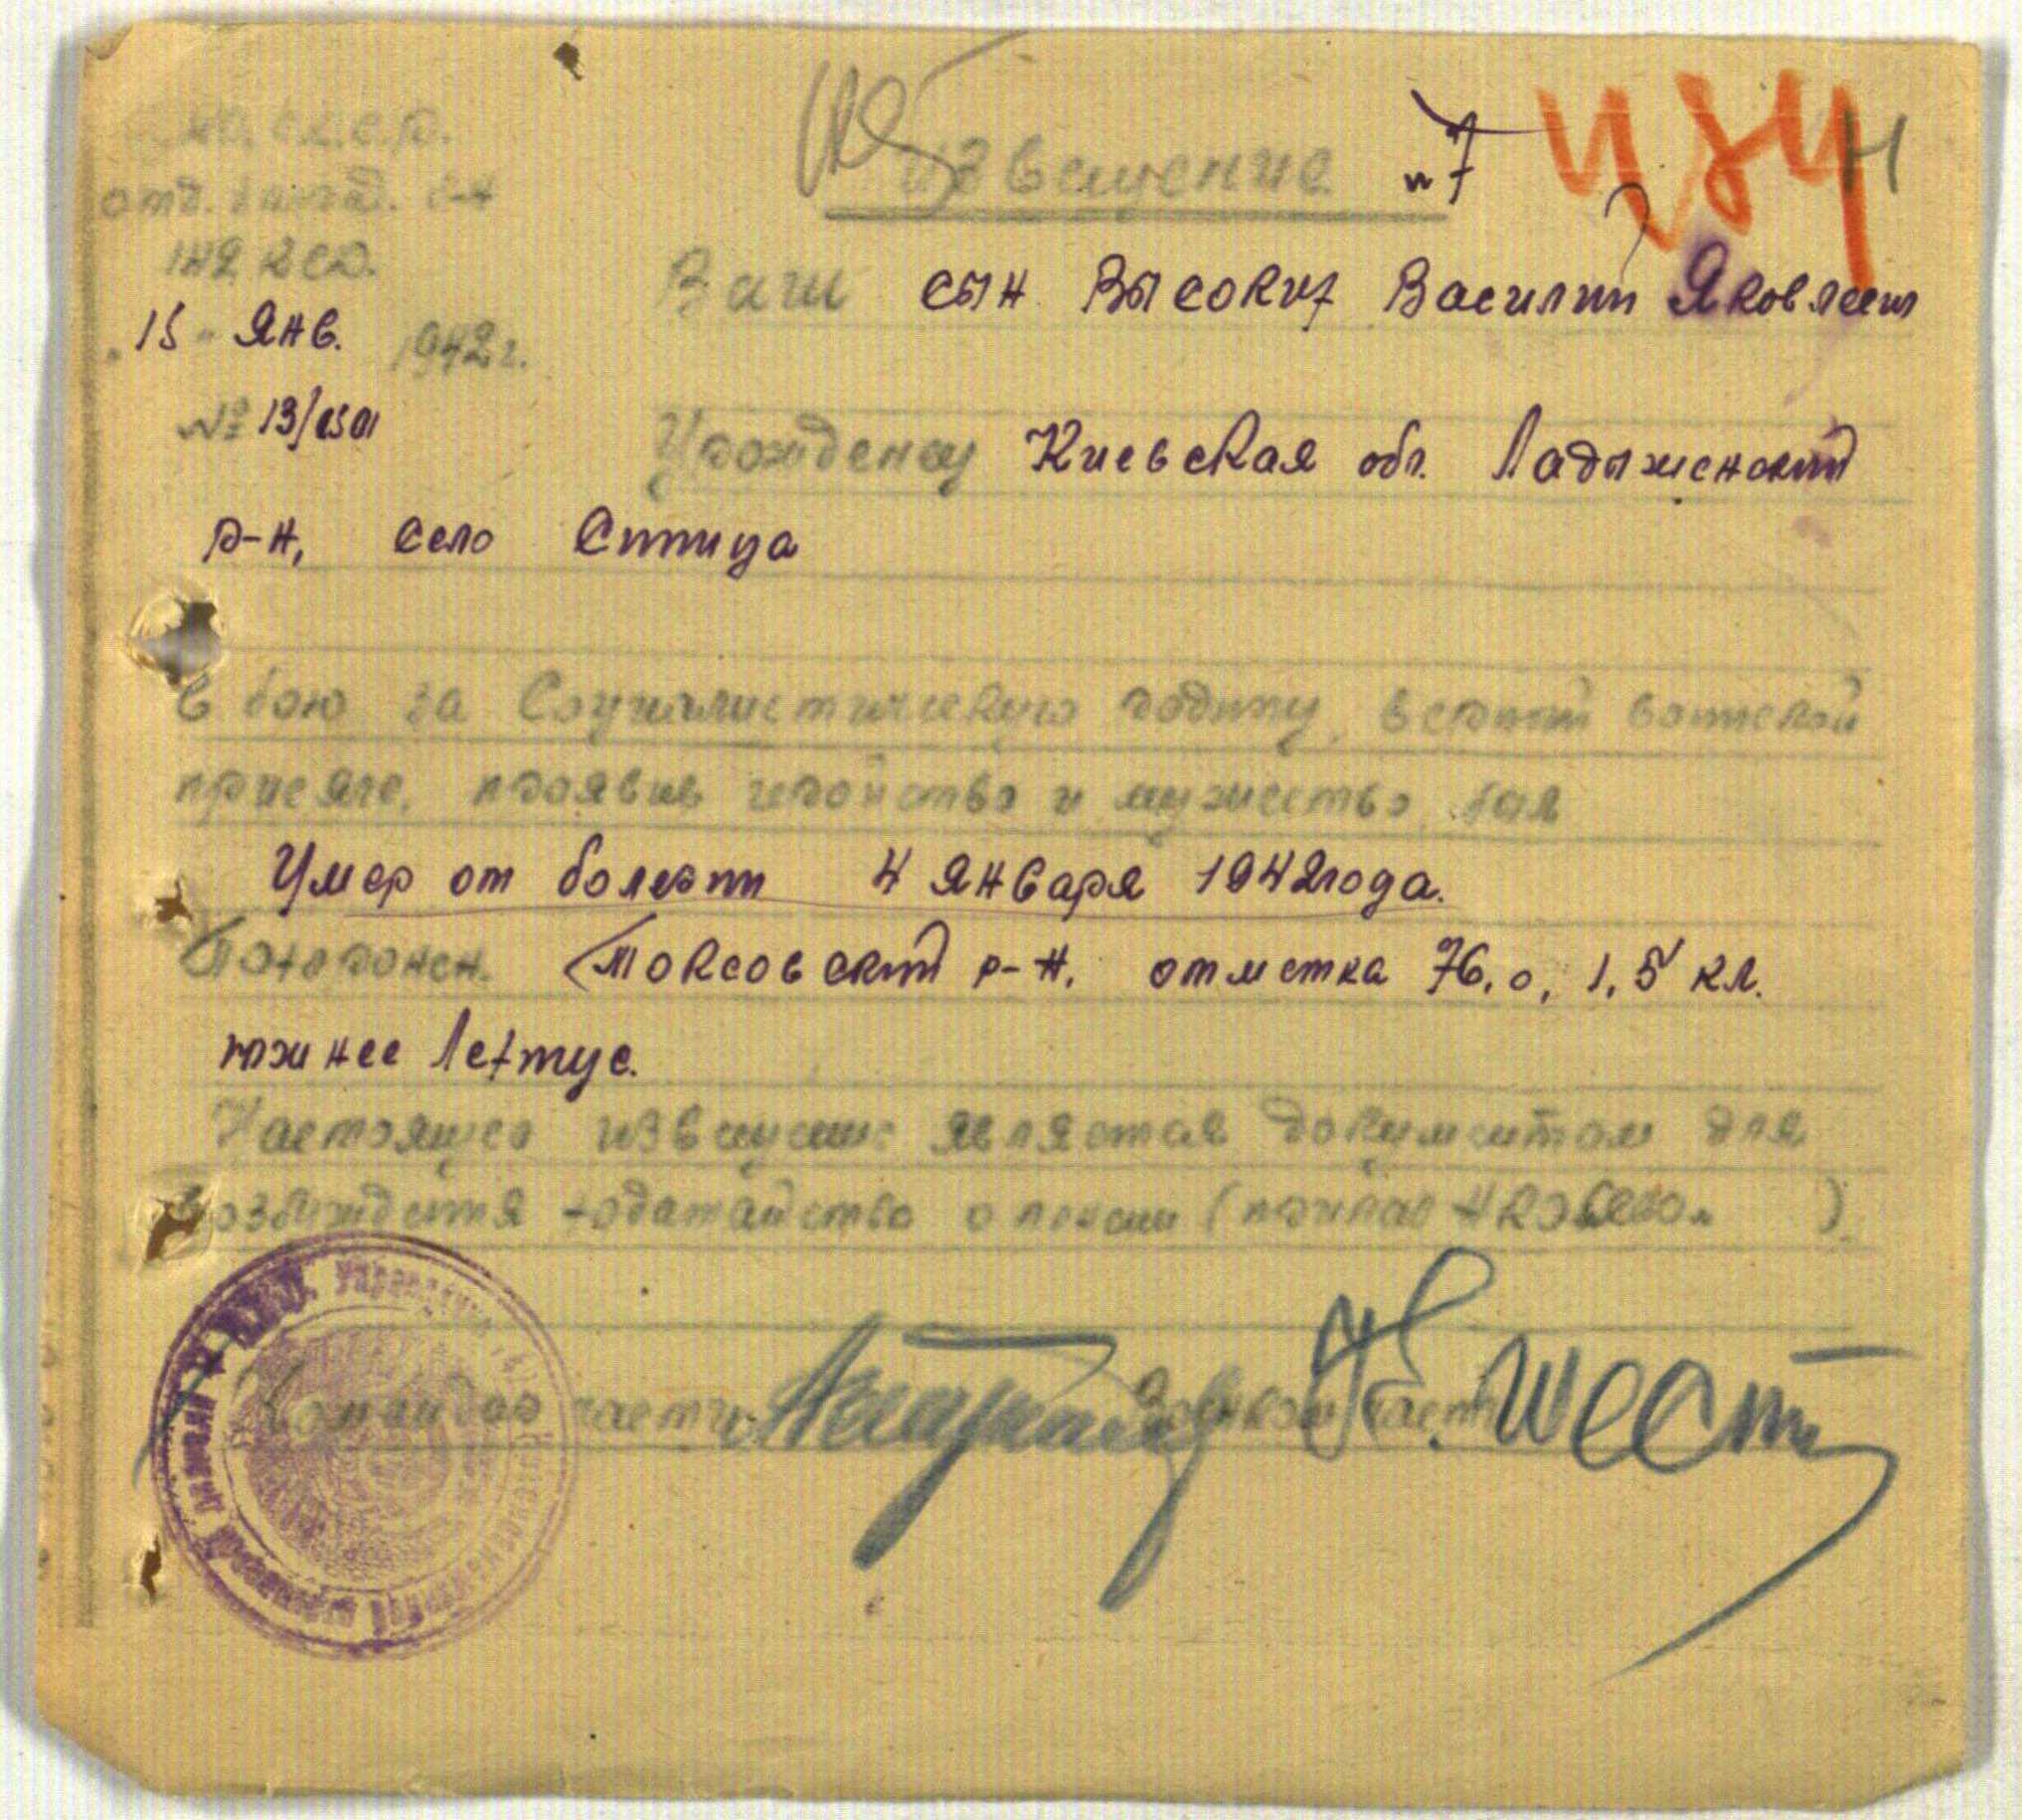 Извещение № 7
отд.
142 КСД.
"15" Янв. 1942 г.
№ 13/
Ваш сын Высоких Василий Яковлевич
Уроженец Киевская обл. Ладыженский
р-н, село
в бою за Социалистическую родину, верный воинской
присяге, проявив геройство и мужество, был
Умер от болезни 4 января 1942 года.
Похоронен. Токсовский р-н. отметка 76,0, 1,5 км.
южнее Лехтус.
Настоящее извещение является документом для
возбуждения ходатайства о пенсии (приказ НКО СССР № )
Командир части Военком части